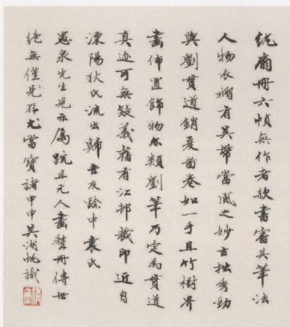 紈扇冊六幀無作者款書審其筆法
人物衣褶有吳帶當風之妙古拙秀勁
與劉貫道銷夏圖卷如一手且竹樹界
畫佈置飾物亦類劉筆乃定為貫道
真迹可無疑義舊有江邨藏印近自
溧陽狄氏流出歸吾友中袁氏
先生見示屬跋且元人畫整冊傳世
絕無僅見尤當寶諸甲申吳湖帆識